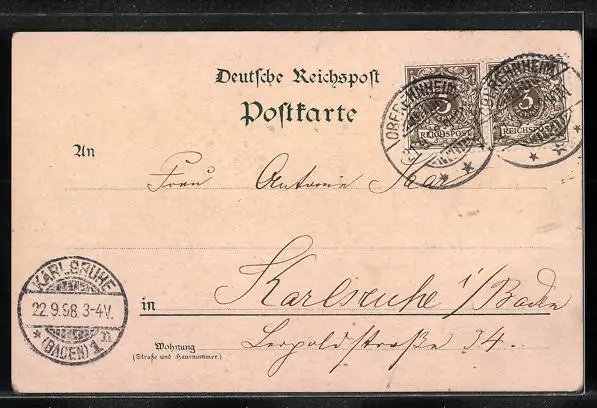 Deutsche Reichspost
Postkarte
3 3
REICHSPOST REICHSPOST
OBEREHNHEIM OBEREHNHEIM
An
Frau Antonie Saar
KARLSRUHE
22.9.98. 3-4V.
(BADEN) 1
in Karlsruhe i/Baden
Wohnung
(Straße und Hausnummer.)
Leopoldstraße 34.